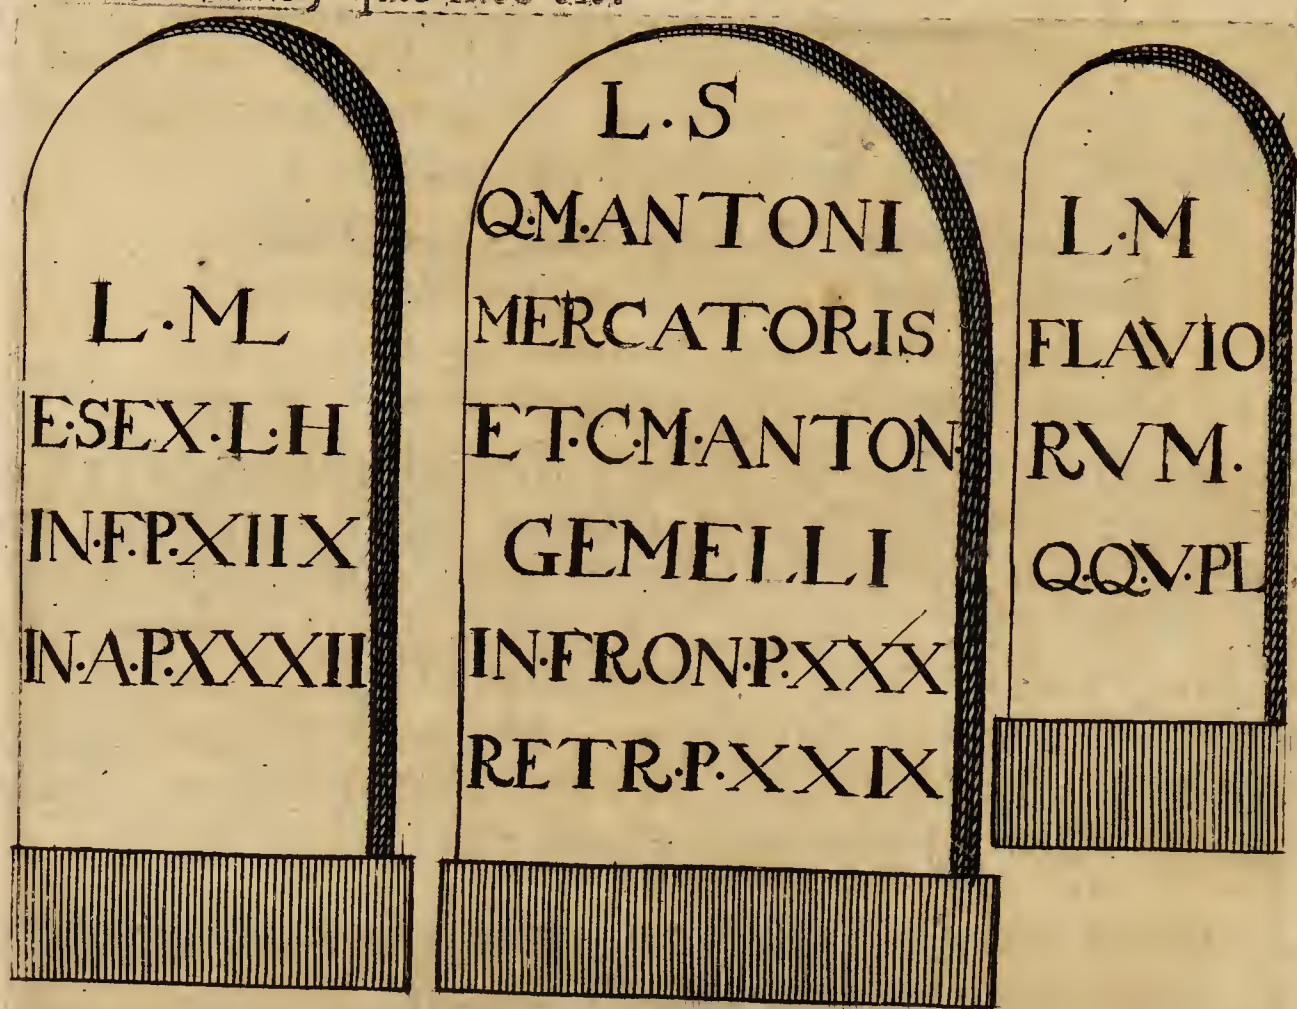 L·ML
E·SEX·L·H
IN·F·P·XIIX
IN·A·P·XXXII
L·S
Q·M·ANTONI
MERCATORIS
ET·C·M·ANTON·
GEMELLI
IN·FRON·P·XXX
RETR·P·XXIX
L·M
FLAVIO
RVM·
Q·Q·V·PL